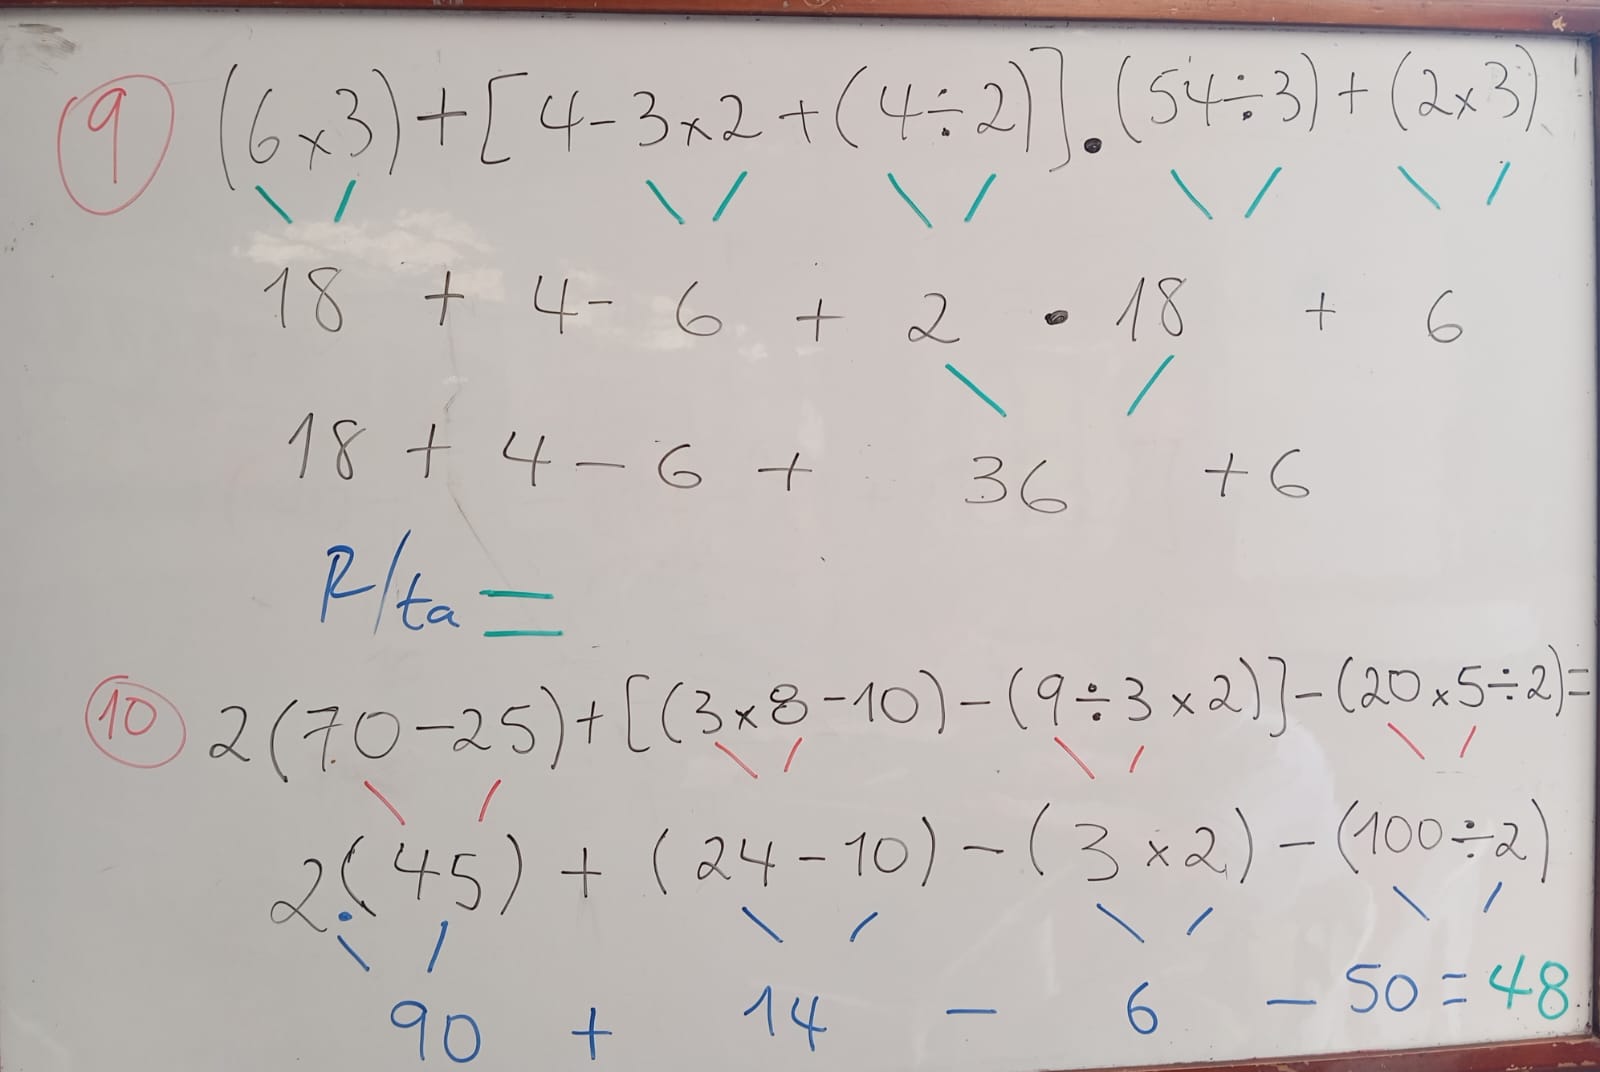 9 (6×3)+[4-3×2+(4÷2)].(54÷3)+(2×3)
18 + 4- 6 + 2 • 18 + 6
18 + 4 - 6 + 36 +6
R/ta =
10 2(70-25)+[(3×8-10)-(9÷3×2)]-(20×5÷2)=
2.(45) + (24-10) - (3×2) - (100÷2)
90 + 14 - 6 - 50 = 48